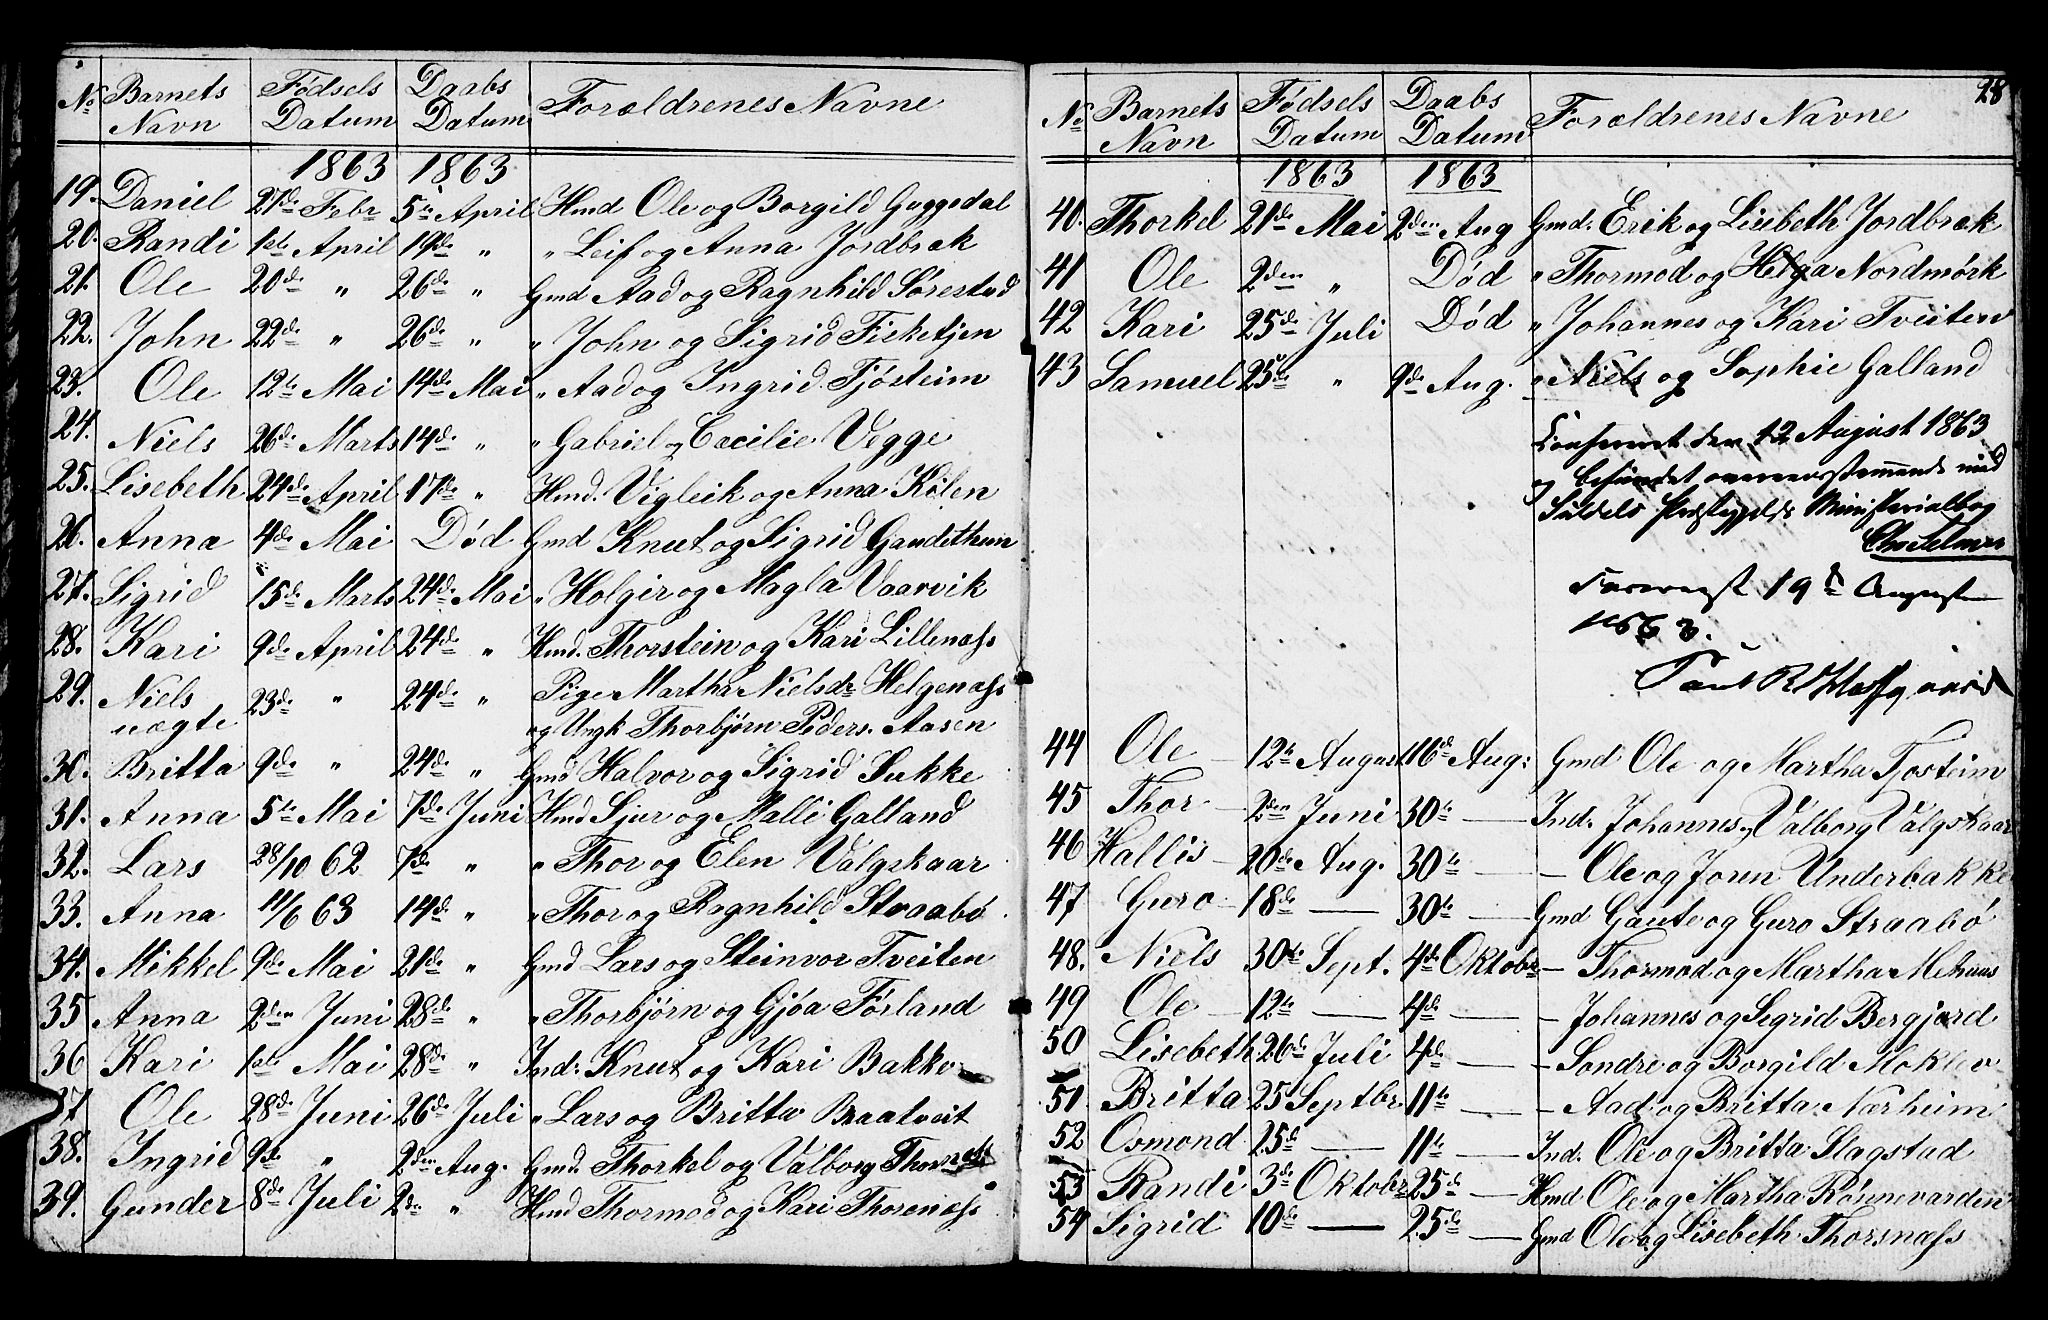 No Barnets Navn Fødsels Datum Daabs Datum Forældrenes Navne
1863 1863
19. Daniel 27de Febr 5te April Hmd Ole og Borgild Guggedal
20. Randi 1ste April 19de " " Leif og Anna Jordbræk
21. Ole 20de " 26de " Gmd Aad og Ragnhild Sørestad
22. John 22de " 26de " " John og Sigrid Fisketjen
23. Ole 12te Mai 14de Mai " Aad og Ingrid Fjøsteim
24. Niels 26de Marts 14de " " Gabriel og Cæcilie Vegge
25. Lisebeth 24de April 17de " Hmd. Vigleik og Anna Kilen
26. Anna 4de Mai Død Gmd Knut og Sigrid Gaudethun
27. Sigrid 15de Marts 24de Mai " Holgir og Magla Vaarvik
28. Kari 9de April 24de " Hmd. Thorstein og Kari Lillenæss
29. Niels 23de " 24de " Pige Martha Nielsdr Helgenæss
uægte og Ungk Thorbjørn Peders. Aasen
30. Britta 9de " 24de " Gmd Halvor og Sigrid Sukke
31. Anna 5te Mai 7de Juni Hmd Sjur og Malli Galland
32. Lars 28/10 62 7de " " Thor og Elen Valgskaar
33. Anna 11/6 63 14de " " Thor og Ragnhild Straabø
34. Mikkel 9de Mai 21de " Gmd Lars og Steinvor Tveiten
35 Anna 2den Juni 28de " " Thorbjørn og Gjøa Førland
36 Kari 1ste Mai 28de " Ind. Knut og Kari Bakke
37 Ole 28de Juni 26de Juli " Lars og Britta Braatveit
38. Ingrid 9de " 2den Aug. Gmd. Thorkel og Valborg
39. Gunder 8de Juli 2den " Hmd Thormod og Kari Thorsnæss
28
No Barnets Navn Fødsels Datum Daabs Datum Forældrenes Navne
1863 1863
40. Thorkel 21de Mai 2den Aug Gmd. Erik og Lisebeth Jordbræk
41 Ole 2den " Død " Thormod og Helga Nordmørk
42 Kari 25de Juli Død " Johannes og Kari Tveiten
43 Samuel 25de " 9de Aug. " Niels og Sophie Galland
Confereret den 12 August 1863
og befundet overeensstemmende med
Suldals Præstegjelds Ministerialbog
19de August
1863.
44 Ole 12te August 16de Aug: Gmd Ole og Martha Fjosteim
45 Thor 2den Juni 30te — Ind. Johannes og Valborg Valgskaar
46 Hallis 20de Aug. 30te — — Ole og Joren Underbakke
47 Guro 18de — 30te — Gmd Gaute og Guro Straabø
48. Niels 30te Sept. 4de Oktobr — Thormod og Martha Mehuus
49 Ole 12te — 4de — — Johannes og Segrid Bergjord
50 Lisebeth 26de Juli 4de — — Sondre og Borgild Moklev
51. Britta 25 Septbr. 11te — — Aad og Britta Nærheim
52 Osmond 15de — 11te — Ind. Ole og Britta Slagstad
53 Randi 3de Oktobr 25de — Hmd Ole og Martha Rønnevarden
54 Sigrid 10de — 25de — Gmd Ole og Lisebeth Thorsnæss